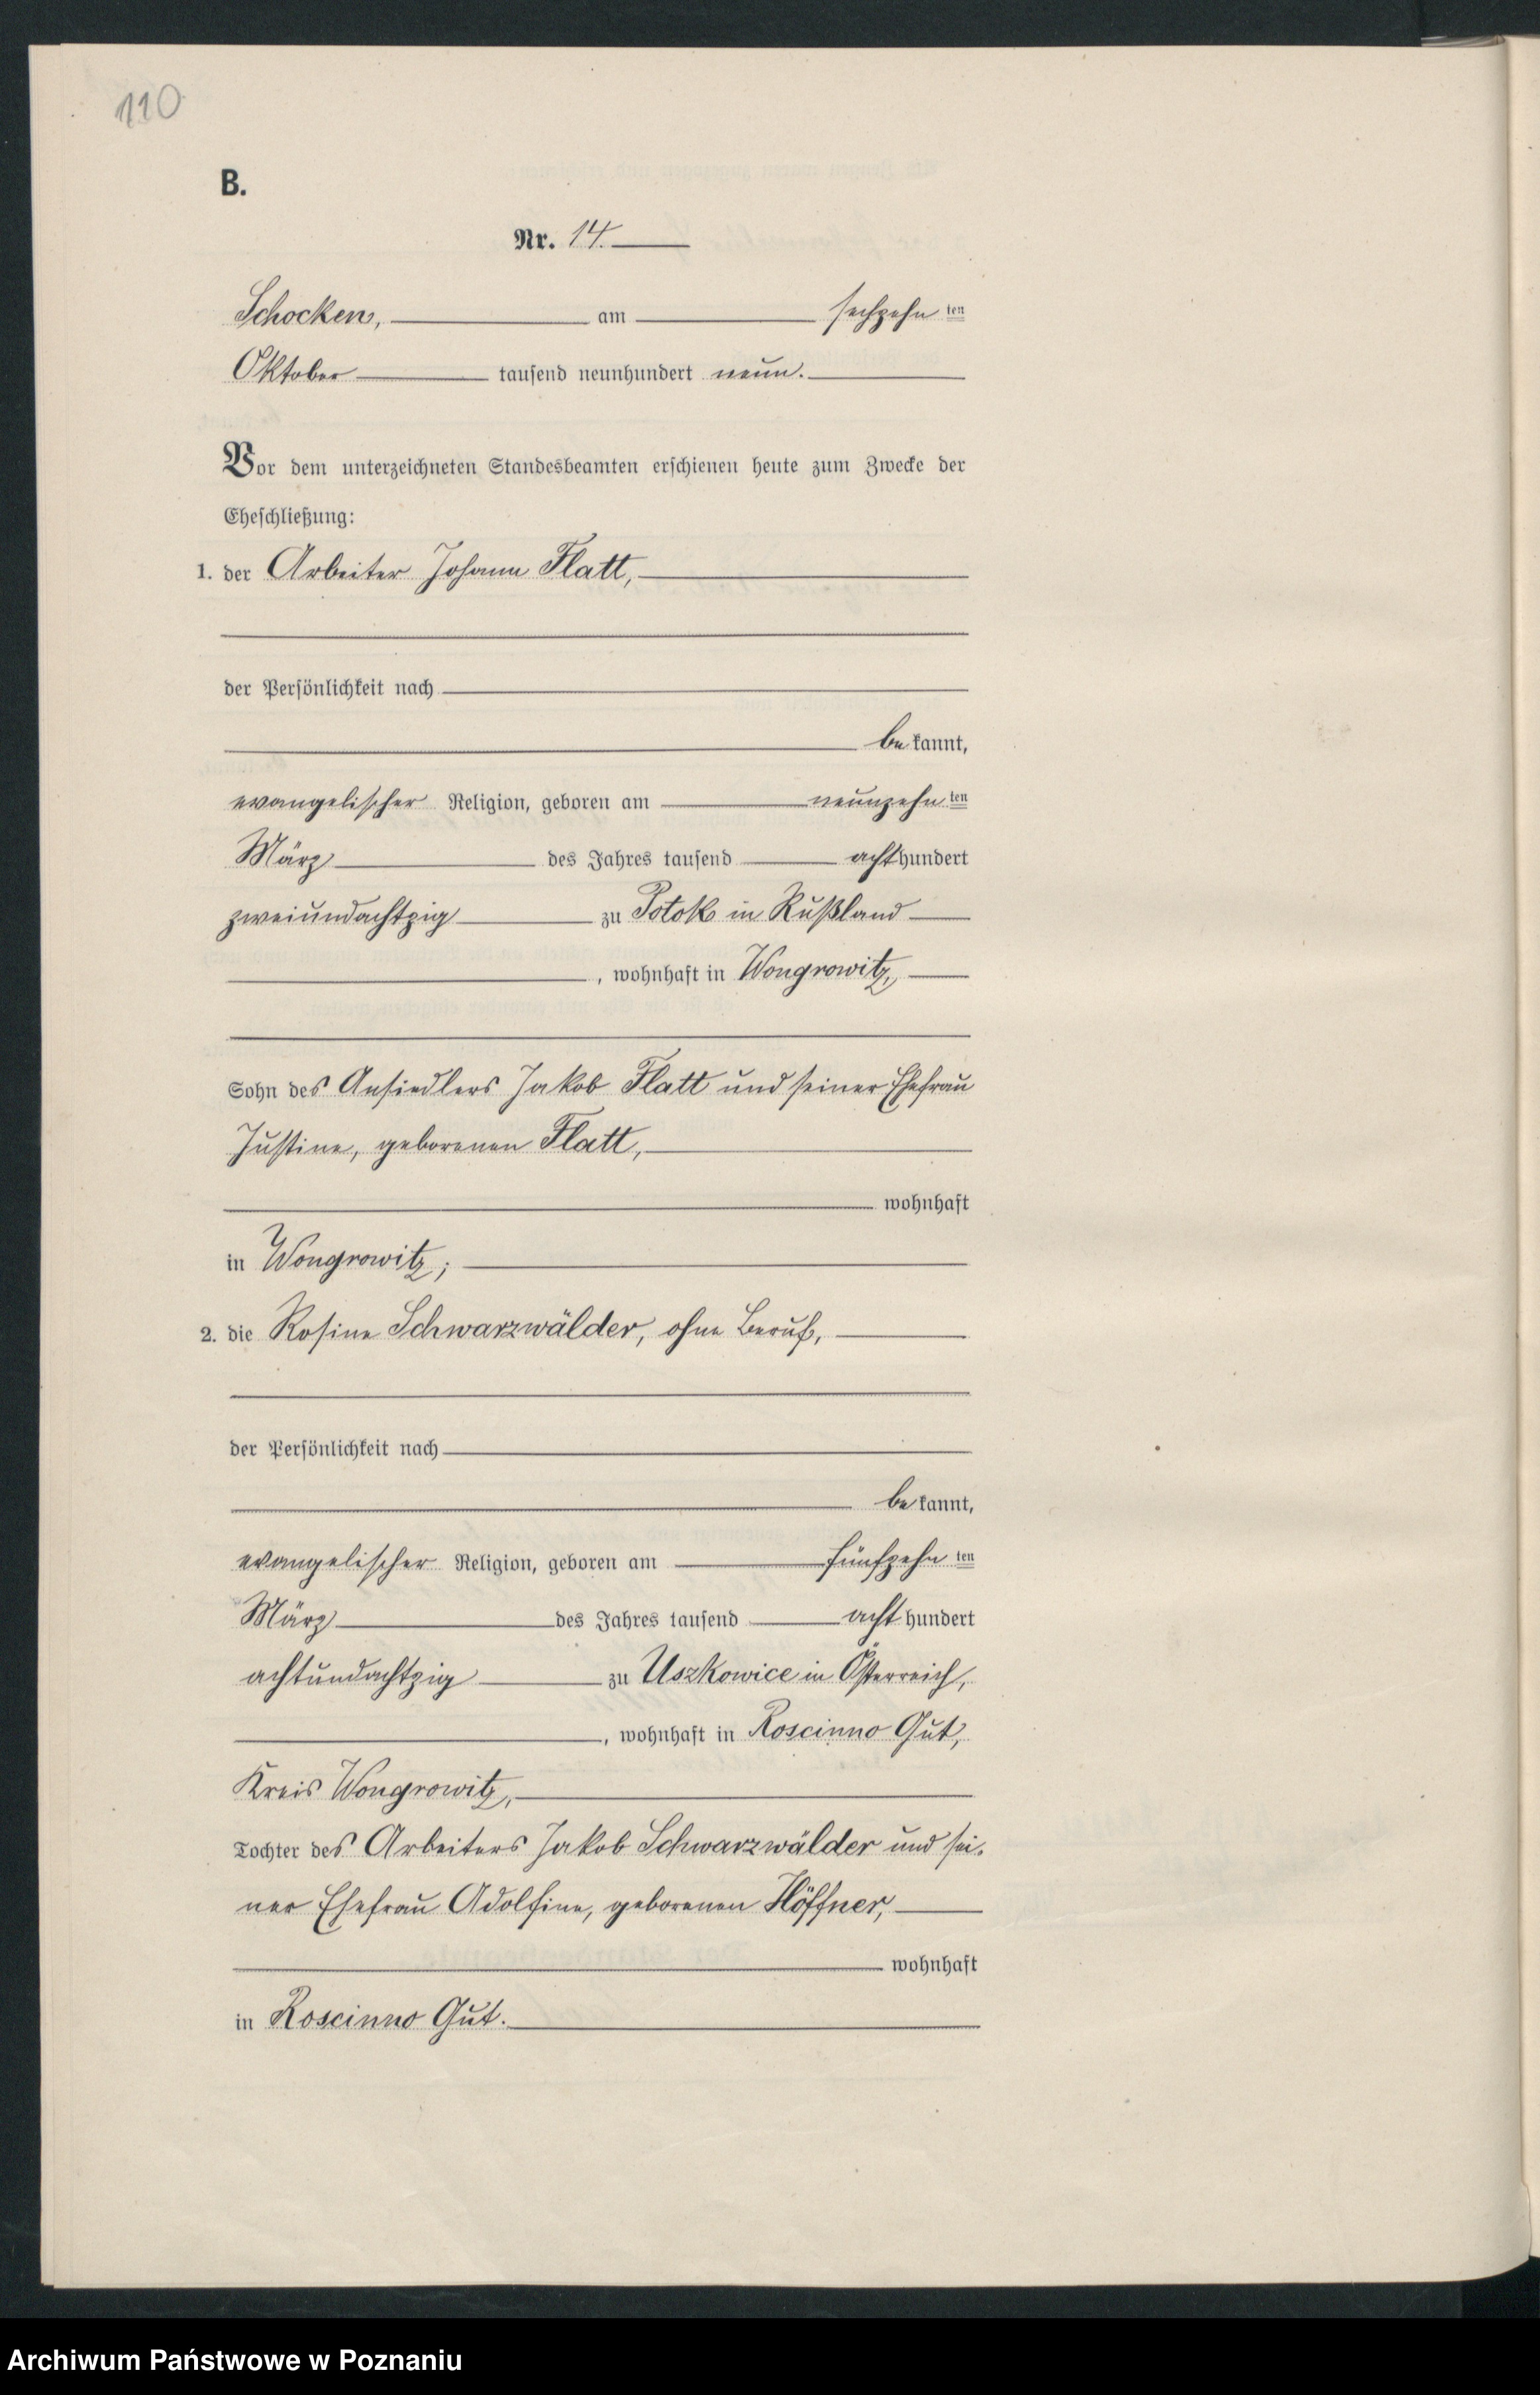 110
B.
Nr. 14.
Schocken, am sechzehn ten
Oktober tausend neunhundert neun.
Vor dem unterzeichneten Standesbeamten erschienen heute zum Zwecke der
Eheschließung:
1. der Arbeiter Johann Flatt,
der Persönlichkeit nach
be kannt,
evangelischer Religion, geboren am neunzehn ten
März des Jahres tausend acht hundert
zweiundachtzig zu Potok in Rußland
, wohnhaft in Wongrowitz,
Sohn des Ansiedlers Jakob Flatt und seiner Ehefrau
Justine, geborenen Flatt,
wohnhaft
in Wongrowitz;
2. die Rosine Schwarzwälder, ohne Beruf,
der Persönlichkeit nach
be kannt,
evangelischer Religion, geboren am fünfzehn ten
März des Jahres tausend acht hundert
achtundachtzig zu Uszkowice in Österreich,
, wohnhaft in Roscinno Gut,
Kreis Wongrowitz,
Tochter des Arbeiters Jakob Schwarzwälder und sei-
ner Ehefrau Adolfine, geborenen Höffner,
wohnhaft
in Roscinno Gut.
Archiwum Państwowe w Poznaniu